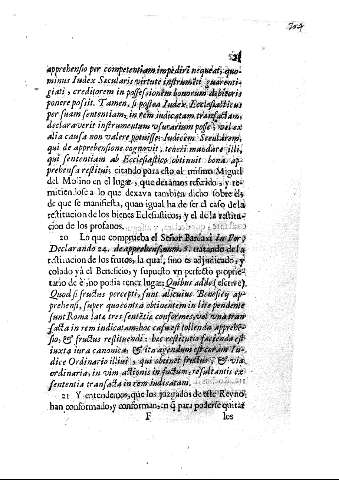 apprehenso per competentiam impediri nequeat, quo-
minus Iudex Secularis virtute instrumẽti guarenti-
giati, creditorem in possessionem bonorum debitoris
ponere possit. Tamen, si postea Iudex Ecclesiasticus
per suam sententiam, in rem indicatam transactam,
declaraverit instrumentum vsurarium posse, vel ex
alia causa non valere potuisse: Iudicem Secularem,
qui de apprehensione cognovit, teneri mandare illi,
qui sententiam ab Ecclesiastico obtinuit bona ap-
prehensa restitui, citando para esto al mismo Miguel
del Molino en el lugar, que dexamos referido, y re-
mitiendose a lo que dexava tambien dicho sobre ès
de que se manifiesta, quan igual ha de ser el caso de la
restitucion de los bienes Eclesiasticos, y el de la restitu-
cion de los profanos.
20 Lo que comprueba el Señor Bardaxi in For.
Declarando 24. de apprehension. 5. tratando de la
restitucion de los frutos, la qual, sino es adjudicado, y
colado yà el Beneficio, y supuesto vn perfecto proprie-
tario de è, no podia tener lugar: Quibus addes (el refiere)
Quod si fructus percepti, sunt alicuius Beneficij ap-
prehensi, super quo contra obtinentem in lite pendente
sunt Romæ latæ tres sentẽtiæ conformes, vel vna tran
sacta in rem indicatam: hoc casu est tollenda apprehẽ-
sio, & fructus restituendi: hæc restitutio facienda est
iuxta iura canonica; & ita agendum est coram Iu-
dice Ordinario illius, qui obtinet fructus, & via
ordinaria, in vim actionis in factum, resultantis ex
sententia transacta in rem indicatam.
21 Y entendemos, que los juzgados de este Reyno
han conformado, y conforman, en q̃ para poderse quitar
F los